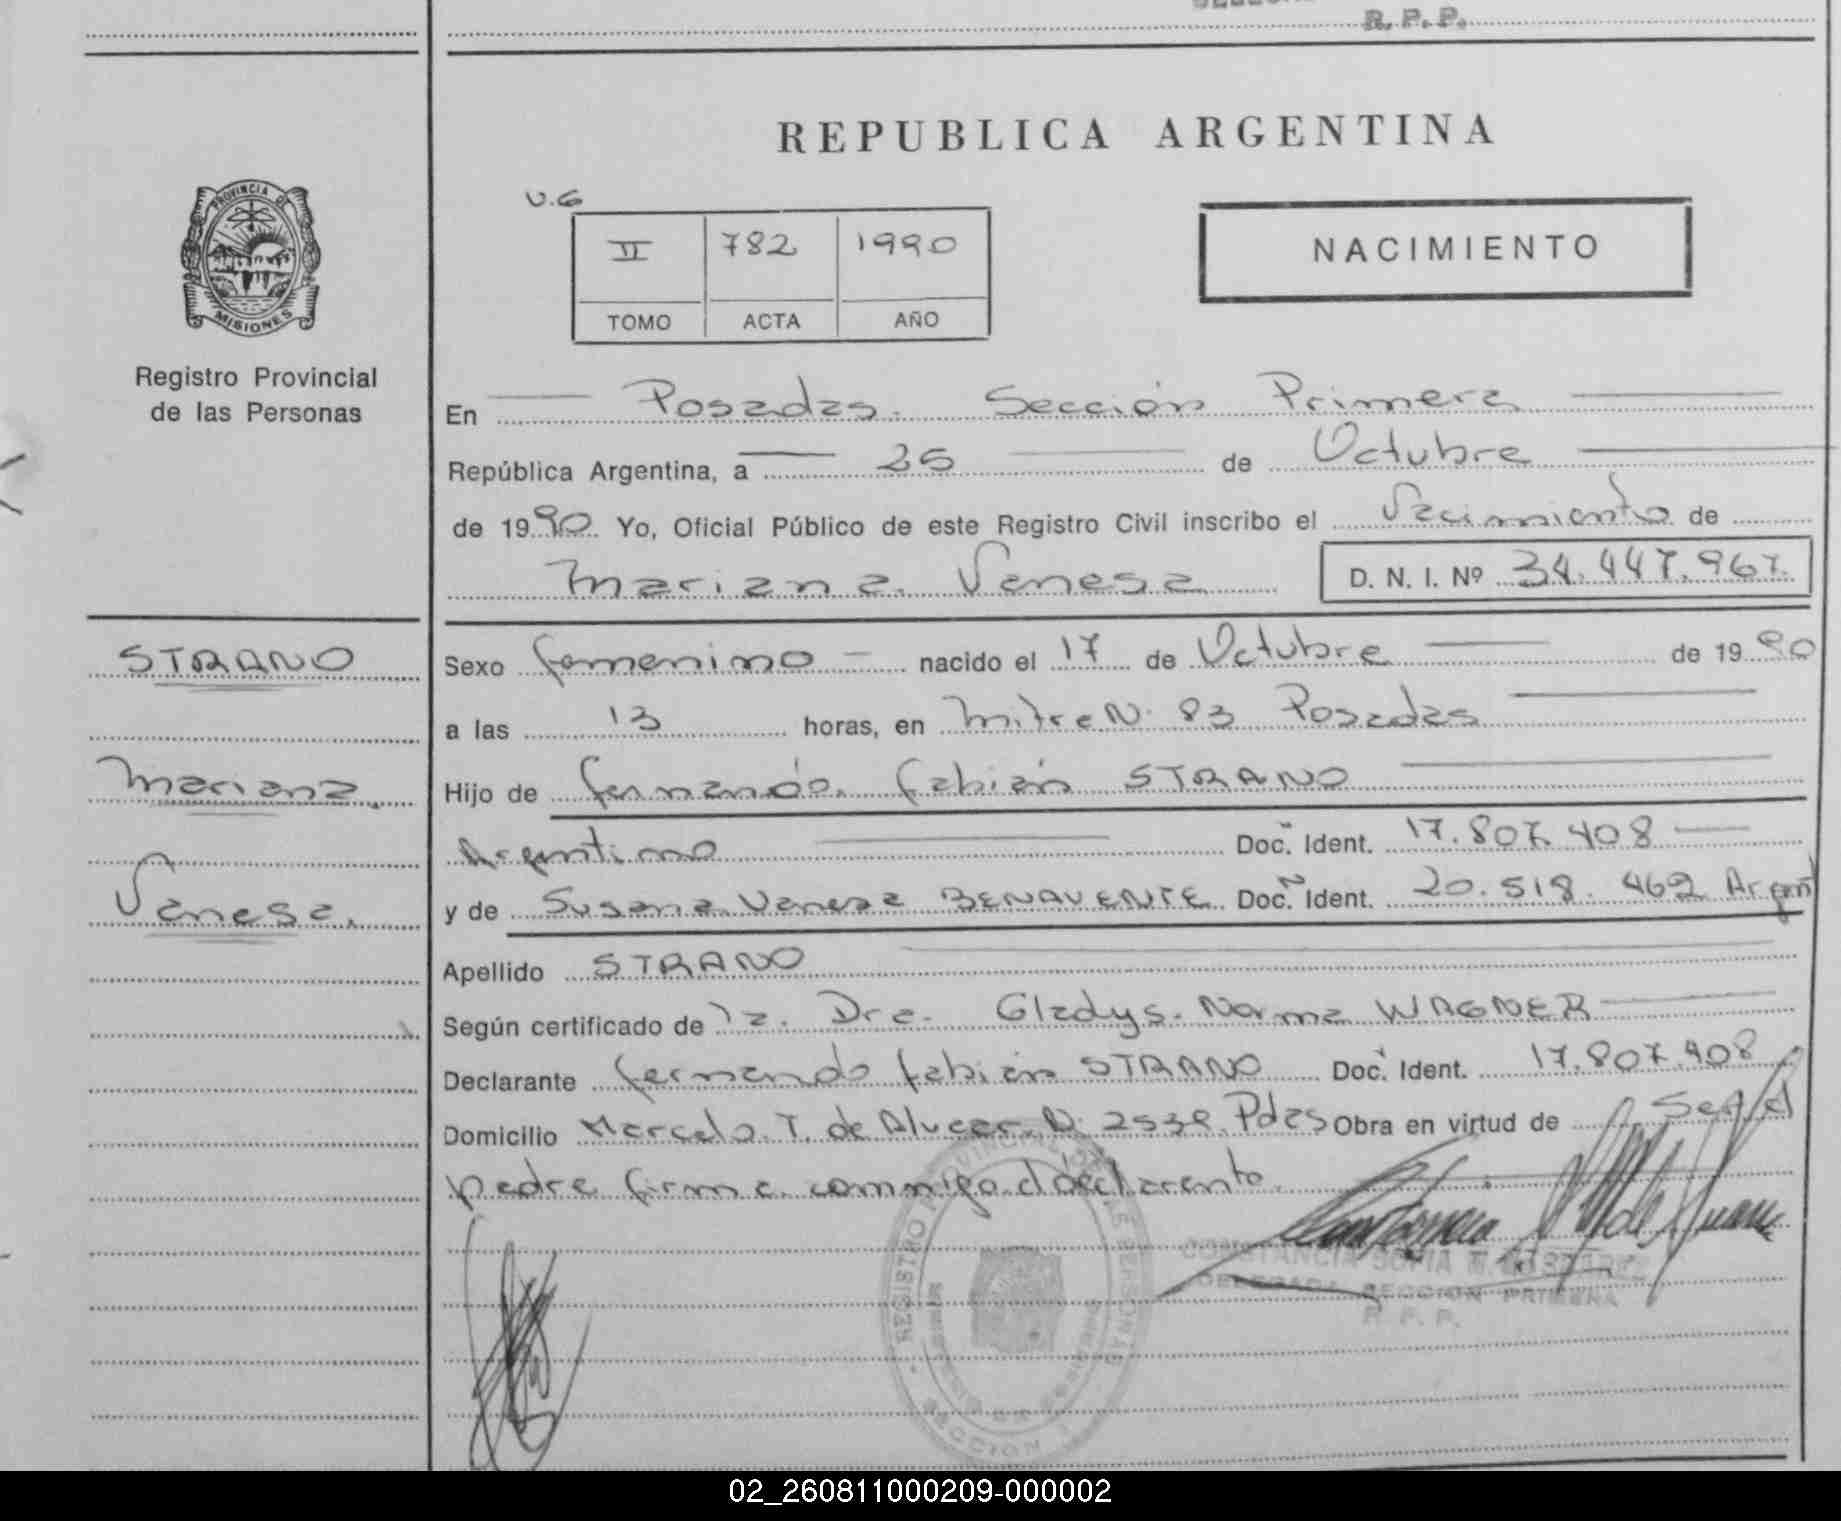 R. P. P.
REPUBLICA ARGENTINA
PROVINCIA DE
MISIONES
Registro Provincial
de las Personas
U.G
II 782 1990
TOMO ACTA AÑO
NACIMIENTO
En Posadas. Sección Primera
República Argentina, a 25 de Octubre
de 1990. Yo, Oficial Público de este Registro Civil inscribo el Nacimiento de
Mariana Vanesa D. N. I. Nº 34.447.967.
STRANO
Mariana
Vanesa.
Sexo femenino nacido el 17 de Octubre de 1990
a las 13 horas, en Mitre N. 83 Posadas
Hijo de Fernando Fabián STRANO
Argentino Doc. Ident. 17.807.408
y de Susana Vanesa BENAVENTE Doc. Ident. 20.518.462 Argent
Apellido STRANO
Según certificado de la. Dra. Gladys. Norma WAGNER
Declarante Fernando Fabián STRANO Doc. Ident. 17.807.408
Domicilio Marcelo T. de Alvear N. Pdas Obra en virtud de Ser el
padre firma conmigo el declarante.
REGISTRO PROVINCIAL DE LAS PERSONAS
SECCION 1
CONSTANCIA SOFIA
DELEGADA SECCION PRIMERA
R. P. P.
02_260811000209-000002